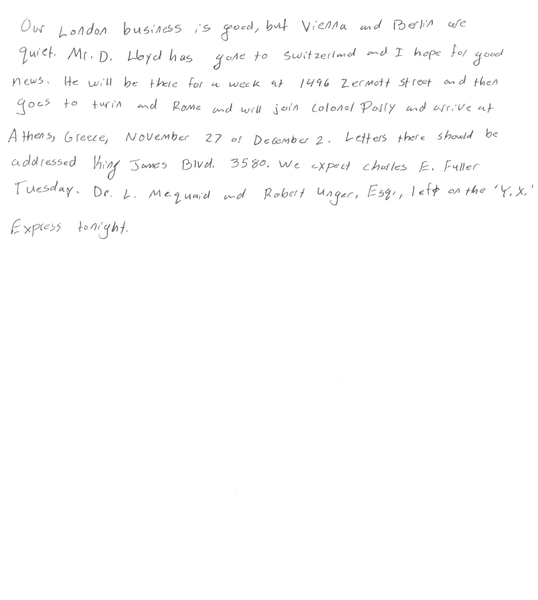 Our London business is good, but Vienna and Berlin are
quiet. Mr. D. Lloyd has gone to Switzerland and I hope for good
news. He will be there for a week at 1496 Zermott Street and then
goes to turin and Rome and will join Colonel Parry and arrive at
Athens, Greece, November 27 or December 2. Letters there should be
addressed King James Blvd. 3580. We expect Charles E. Fuller
Tuesday. Dr. L. Mcquaid and Robert Unger, Esq., left on the 'Y.X.'
Express tonight.